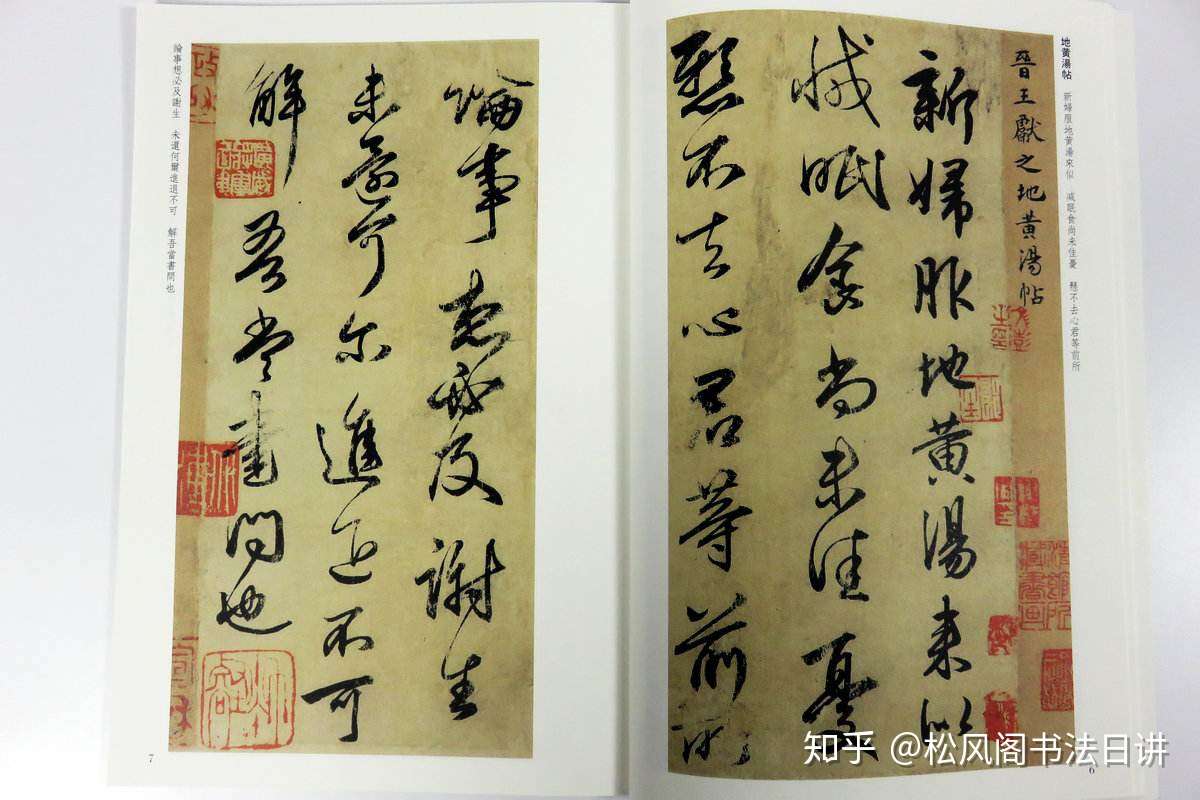 地黄湯帖　新婦服地黄湯來似　減眠食尚未佳憂　懸不去心君等前所
晋王獻之地黄湯帖
新婦服地黄湯来似
減眠食尚未佳憂
懸不去心君等前所
論事想必及謝生
未還可尔進退不可
解吾當書問也
論事想必及謝生　未還何爾進退不可　解吾當書問也
7
6
知乎 @松风阁书法日讲